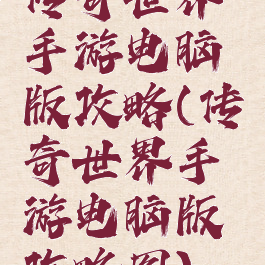 传奇世界
手游电脑
版攻略(传
奇世界手
游电脑版
攻略图)